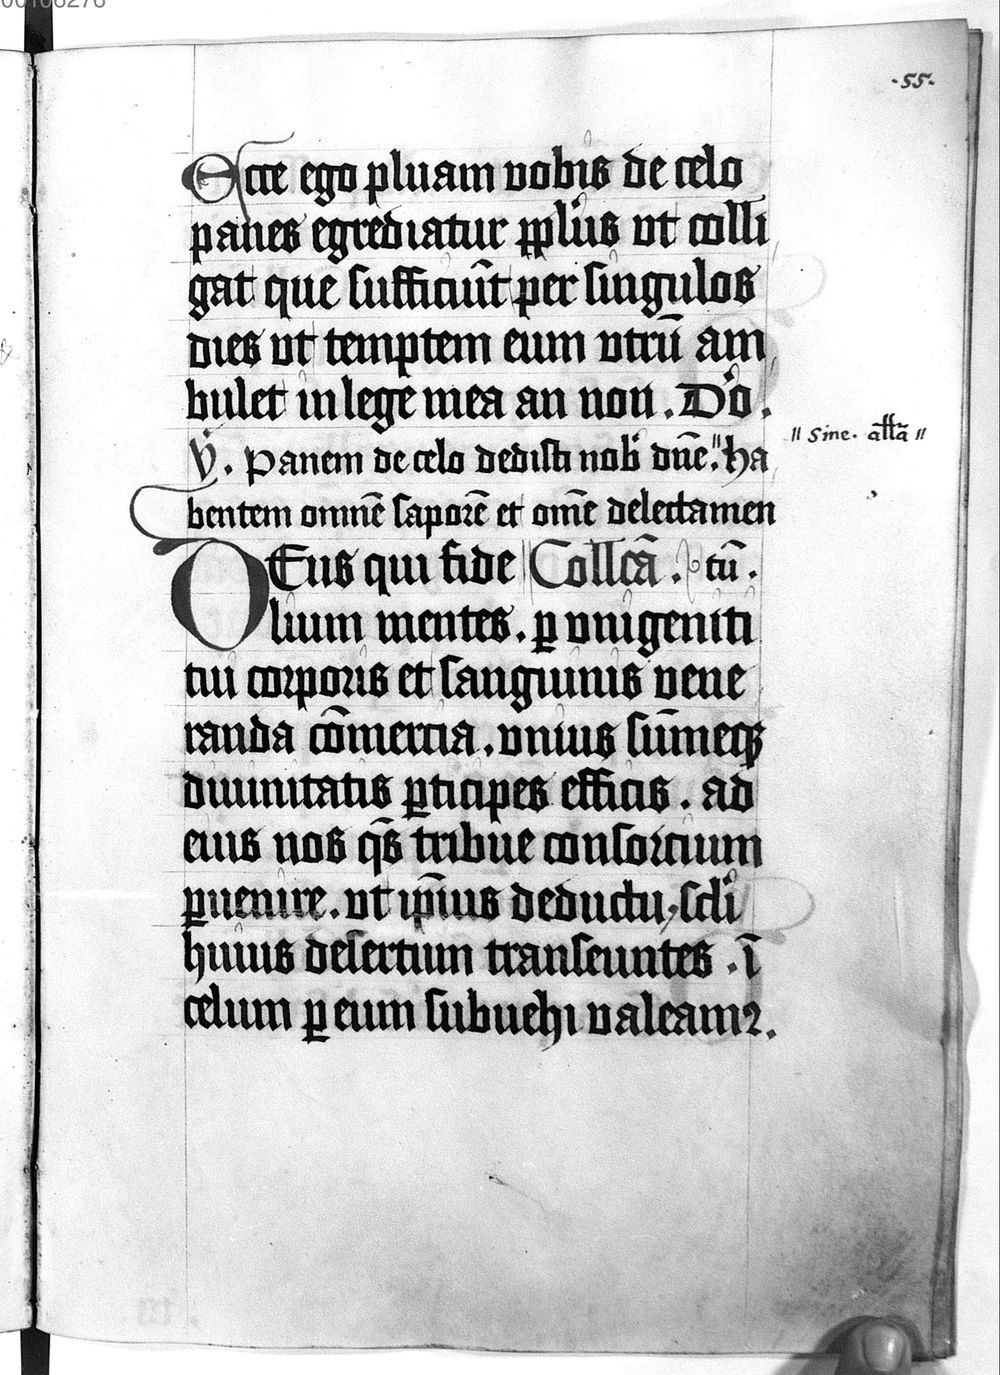 00106276
·55·
Ecce ego pluam vobis de celo
panes egrediatur ppl's vt colli
gat que sufficiūt per singulos
dies vt temptem eum vtrū am
bulet in lege mea an non. D'o.
v̇. Panem de celo dedisti nob' dn̄e." ha
" Sine. all̄a "
bentem omnē saporē et om̄e delectamen
DEus qui fide Collcā. tū.
lium mentes. ꝑ vnigeniti
tui corporis et sanguinis vene
randa cōmercia. vnius sūmeqꝫ
diuinitatis ꝑticipes efficis. ad
eius nos qs̄ tribue consorcium
ꝑuenire. vt ip̄ius deductu, scl'i
huius desertum transeuntes. ī
celum ꝑ eum subuehi valeamꝰ.